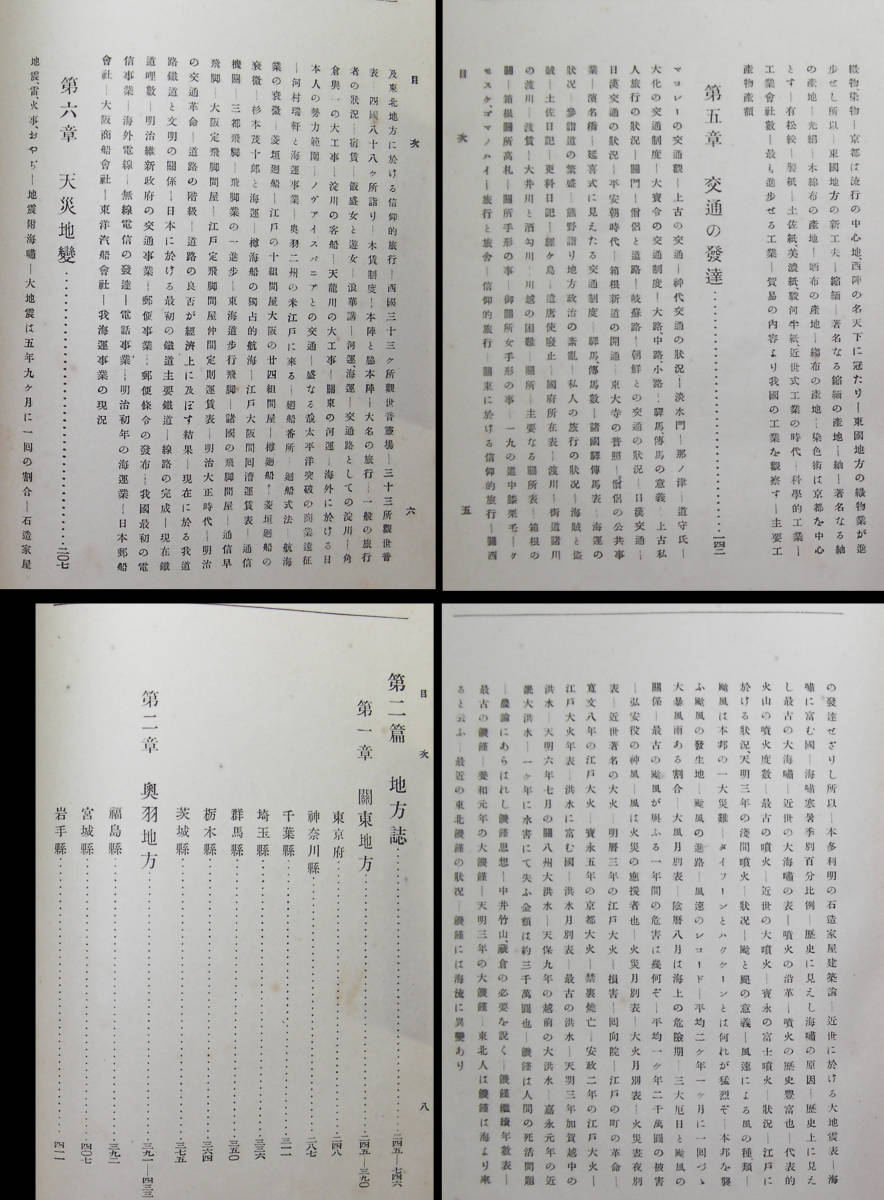 織物、染物―京都は流行の中心地、西陣の名天下に冠たり―東國地方の織物業が進
歩せし所以―東國地方の新工夫―縮緬―著名なる縮緬の產地―紬―著名なる紬
の產地―先絹―木綿布の產地―晒布の產地―縐布の產地―染色術は京都を中心
とす―有松絞―製紙―土佐紙、美濃紙、駿河半紙、近世式工業の時代―科學的工業―
工業會社數―最も進歩せる工業―貿易の內容より我國の工業を觀察す―主要工
產物產額
第五章 交通の發達……一四二
マコレーの交通觀―上古の交通―神代交通の狀況―淡水門―那ノ津―道守氏―
大化の交通制度―大寶令の交通制度―大路、中路、小路―驛馬、傳馬の意義―上古私
人旅行の狀況―關門―僧侶と道路―岐蘇路―朝鮮との交通の狀況―日漢交通―
日漢交通の狀況―平安朝時代―箱根新道の開通―東大寺の普照―僧侶の公共事
業―濱名橋―延喜式に見えたる交通制度―驛馬、傳馬數―諸國驛傳馬表―海運の
狀況―參詣道の繁盛―熊野詣り地方政治の紊亂―私人の旅行の狀況―海賊と盜
賊―土佐日記―更科日記―經ケ島―遣唐使廢止―國府所在表―渡川―街道諸川
の渡川―渡賃―大井川と酒匂川―川越の困難―關所―主要なる關所表―箱根の
關―箱根關所高札―關所手形の事―御關所女手形の事―一九の道中膝栗毛―ク
モスケ、ゴマノハイ―旅行と旅舍―信仰的旅行―關東に於ける信仰的旅行―關西
目次 五
目次 六
及東北地方に於ける信仰的旅行―西國三十三ケ所觀世音靈場―三十三所觀世音
表―四國八十八ケ所詣り―木賃制度―本陣と脇本陣―大名の旅行―一般の旅行
者の狀況―宿賃―飯盛女と遊女―浪華講―河運、海運―交通路としての淀川―角
倉與一の大工事―淀川の客船―天龍川の大工事―關東の河運―海外に於ける日
本人の勢力範圍―ノヴアイスパニアとの交通―盛なる哉太平洋突破の商業遠征
―河村瑞軒と海運事業―奧羽二州の米江戶に來る―廻船番所―廻船式法―航海
業の衰微―菱垣廻船―江戶の十組問屋大阪の廿四組問屋―樽廻船―菱垣廻船の
衰微―杉本茂十郎と海運―樽海船の獨占的航海―江戶大阪間回漕運賃表―通信
機關―三都飛脚―飛脚業の一進步―東海道步行飛脚―諸國の飛脚問屋―通信早
飛脚―大阪定飛脚問屋―江戶定飛脚問屋仲間定則運賃表―明治大正時代―明治
の交通革命―道路の階級―道路の良否が經濟上に及ぼす結果―現在に於る我道
路鐵道と文明の關係―日本に於ける最初の鐵道主要鐵道―線路の完成―現在鐵
道哩數―明治維新政府の交通事業―郵便事業―郵便條令の發布―我國最初の電
信事業―海外電線―無線電信の發達―電話事業―明治初年の海運業―日本郵船
會社―大阪商船會社―東洋汽船會社―我海運事業の現況
第六章 天災地變……二〇七
地震、雷火事、おやぢ―地震附海嘯―大地震は五年九ケ月に一回の割合―石造家屋
の發達せざりし所以―本多利明の石造家屋建築論―近世に於ける大地震表―海
嘯に富む國―海嘯寒暑季別百分比例―歷史に見えし海嘯の原因―歷史上に見え
し最古の大海嘯―近世の大海嘯の表―噴火の沿革―噴火の歷史豐富也―代表的
火山の噴火度數―最古の噴火―近世の大噴火―寶永の富士噴火―狀況―江戶に
於ける狀況、天明三年の淺間噴火―狀況―颱と颶の意義―風速による風の種類―
颱風は本邦の一大災難―タイフーンとハリケーンとは何れが猛烈ぞ―本邦を襲
ふ颱風の發生地―颱風の進路―風速のレコード―平均二ケ年一ケ月に一回づゝ
大暴風雨ある割合―大風月別表―陰曆八月は海上の危險期―三大厄日と颱風の
關係―最古の颱風が與ふる一年間の危害は幾何ぞ―平均一ケ年二千萬圓の被害
―弘安役の神風―風は火災の應援者也―火災月別表―大火月別表―火災晝夜別
表―近世著名の大火―明曆三年の江戶大火―損害―回向院―江戶の町の革命―
寬文八年の江戶大火―寶永五年の京都大火―禁裏燒亡―安政二年の江戶大火―
江戶大火年表―洪水に富む國―洪水月別表―最古の洪水―天明三年加賀越中の
洪水―天明六年七月の關八州大洪水―天保九年の越前の大洪水―嘉永元年の近
畿大洪水―一ケ年に水害にて失ふ金額は約三千萬圓也―饑饉は人間の死活問題
―農諭にあらはれし饑饉思想―中井竹山、藏倉の必要を說く―饑饉繼續年數表―
最古の饑饉―養和元年の大饑饉―天明三年の大饑饉―東北人は饑饉は海より來
ると云ふ―最近の東北饑饉の狀況―饑饉には海流に異變あり
目次 八
第二篇 地方誌……二四五―七四六
第一章 關東地方……二四五―三九〇
東京府……二四八
神奈川縣……二八七
千葉縣……三一一
埼玉縣……三三六
群馬縣……三五〇
栃木縣……三六四
茨城縣……三七五
第二章 奧羽地方……三九一―四三三
福島縣……三九二
宮城縣……四〇七
岩手縣……四一一